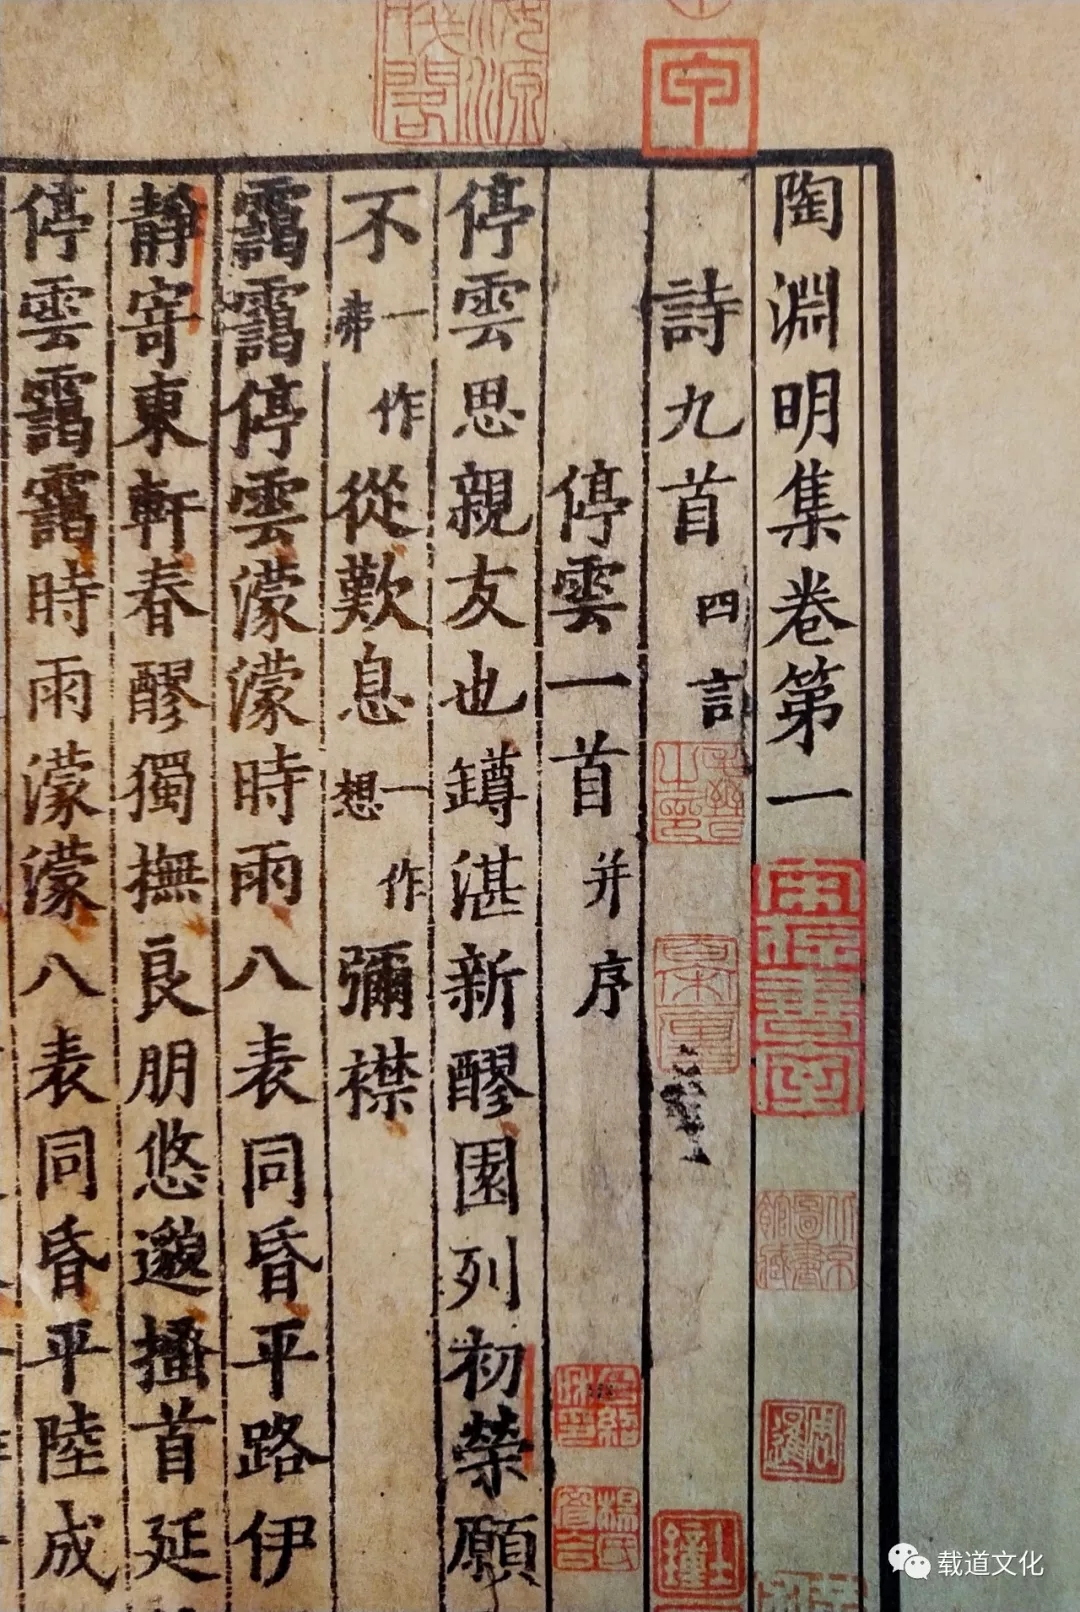 陶淵明集卷第一
詩九首四言
停雲一首并序
停雲思親友也罇湛新醪園列初榮願
不一作弗從歎息一作想彌襟
靄靄停雲濛濛時雨八表同昏平路伊
靜寄東軒春醪獨撫良朋悠邈搔首延
停雲靄靄時雨濛濛八表同昏平陸成
宋存書室
北京圖書館藏
周暹
楊氏
载道文化